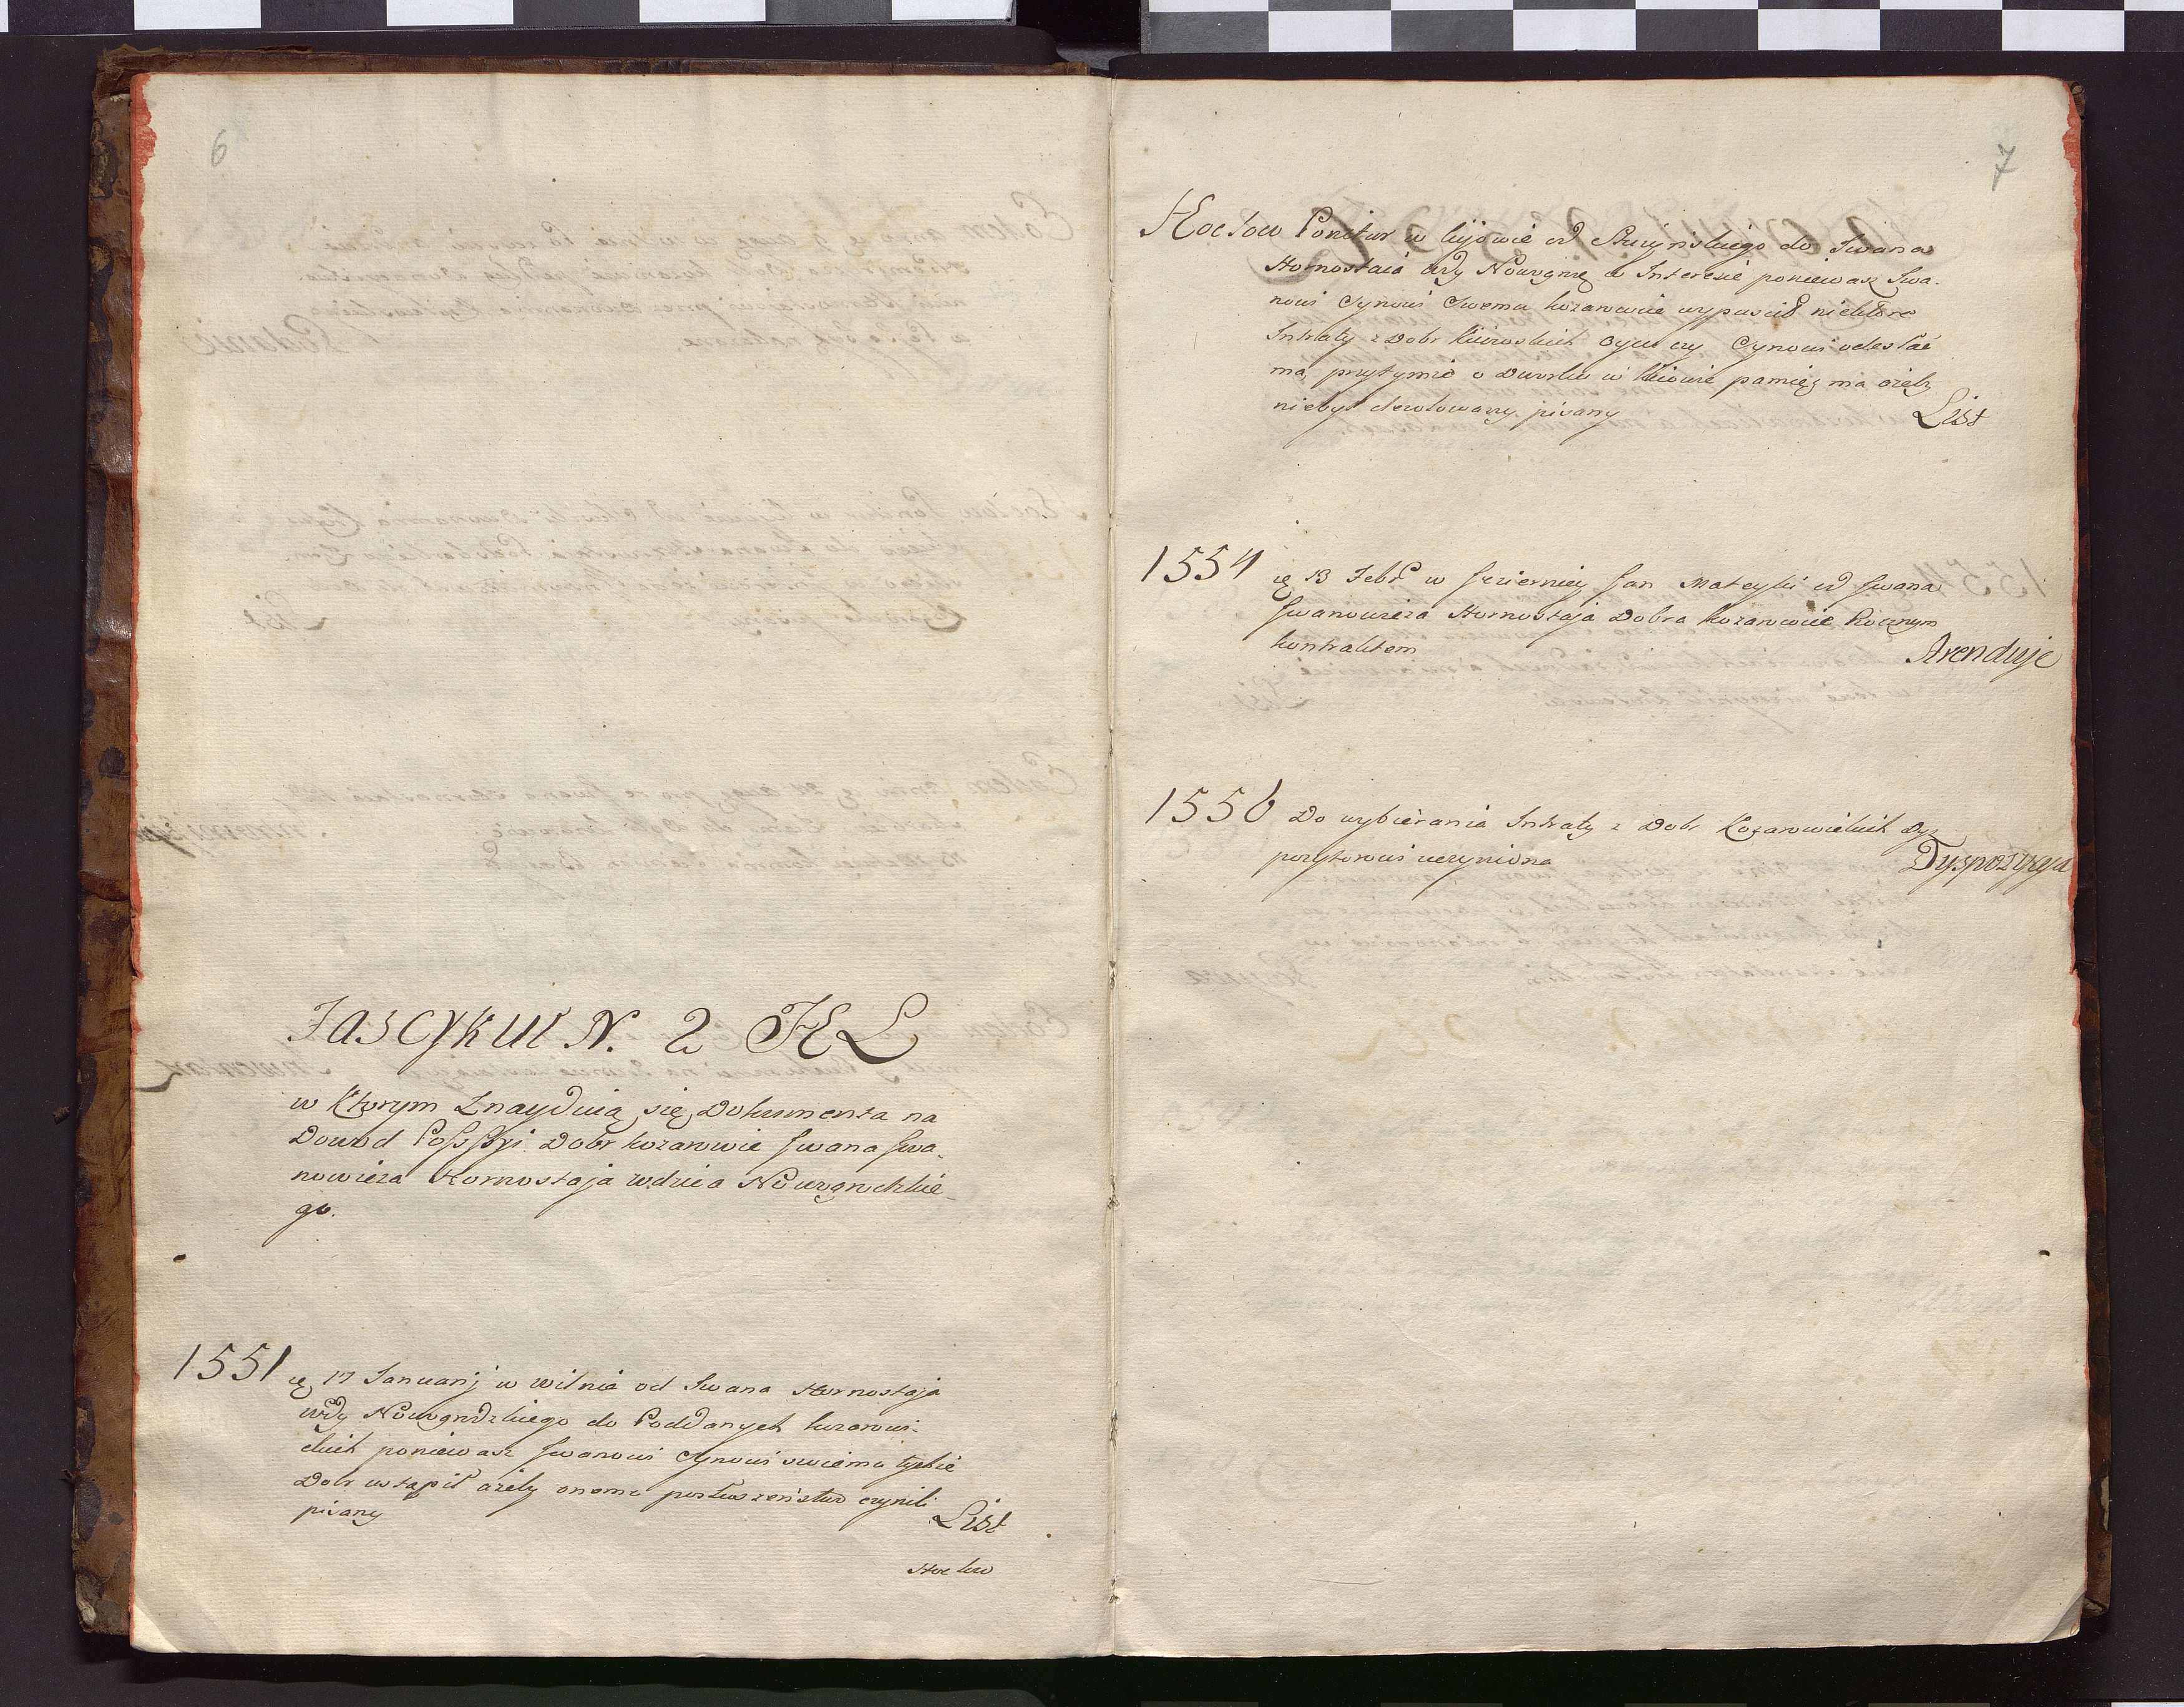 6
Fascykuł N. 2 HL
w Ktorym Znayduią się Dokumenta na
Dowod Possyi Dobr Kozarowic Iwana Iwa-
nowicza Hornostaja wdzica Nowgrodzkie-
go.
1551 ę 17 Januarij w Wilnie od Iwana Hornostaja
wdy Nowogrodzkiego do Poddanych Kozarowi-
ckich poniewasz Iwanowi Synowi swiemu tychże
Dobr ustąpił ażeby onemu posłuszeństwo czynili
pisany List
Hoc low
7
Hoc Low Ponitur w Kijowie od do Iwana
Hornostaia wdy Nowogrzę w Interesie poniewasz Iwa-
nowi Synowi Swemu Kozarowice wypuscił niektore
Intraty z Dobr Oycu czy Synowi odesłać
ma, przytymże o Dworku w Kiowie pamięć ma ażeby
niebył pisany List
1554 ę 13 Febr w Jan od Iwana
Iwanowicza Hornostaja Dobra Kozarowice Rocznym
kontraktem Arenduje
1556 Do wybierania Intraty z Dobr Kozarowickich Dys
pozytorowi uczyniona Dyspozycya